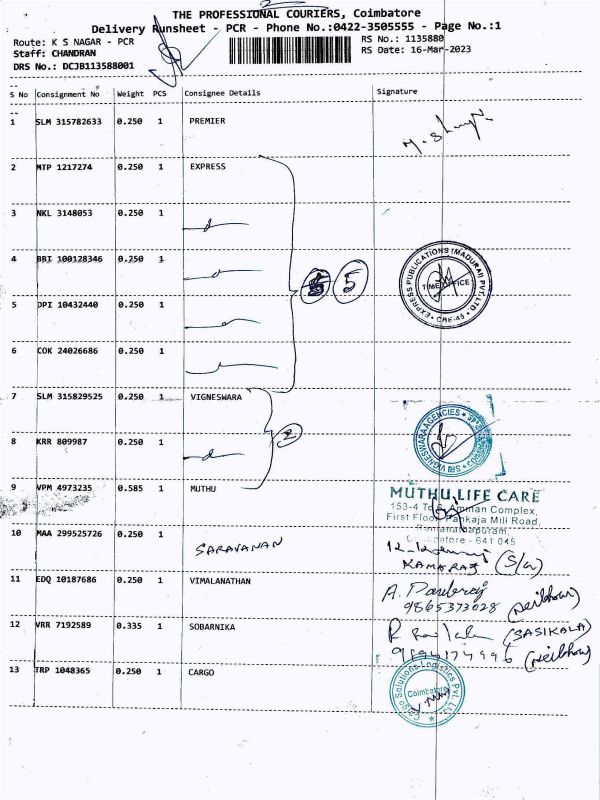 THE PROFESSIONAL COURIERS, Coimbatore
Delivery Runsheet - PCR - Phone No.:0422-3505555 - Page No.:1
Route: K S NAGAR - PCR
RS No.: 1135880
Staff: CHANDRAN
RS Date: 16-Mar-2023
DRS No.: DCJB113588001
S No Consignment No Weight PCS Consignee Details Signature
1 SLM 315782633 0.250 1 PREMIER
2 MTP 1217274 0.250 1 EXPRESS
3 NKL 3148053 0.250 1
4 BBI 100128346 0.250 1
5 DPI 10432440 0.250 1
6 COK 24026686 0.250 1
5
EXPRESS PUBLICATIONS (MADURAI) PVT LTD
TIME OFFICE
CBE-45
7 SLM 315829525 0.250 1 VIGNESWARA
8 KRR 809987 0.250 1
2
SRI VIGNESWARA AGENCIES
9 VPM 4973235 0.585 1 MUTHU
MUTHU LIFE CARE
153-4 Amman Complex,
First Floor, Pankaja Mill Road,
Ramanathapuram,
Coimbatore - 641 045
10 MAA 299525726 0.250 1 SARAVANAN
KAMARAJ (S/a)
11 EDQ 10187686 0.250 1 VIMALANATHAN
9865373028 (Neibhour)
12 VRR 7192589 0.335 1 SOBARNIKA
(SASIKALA)
(Neibhour)
13 TRP 1048365 0.250 1 CARGO
Cargo Solutions Logistics Pvt. Ltd.
Coimbatore